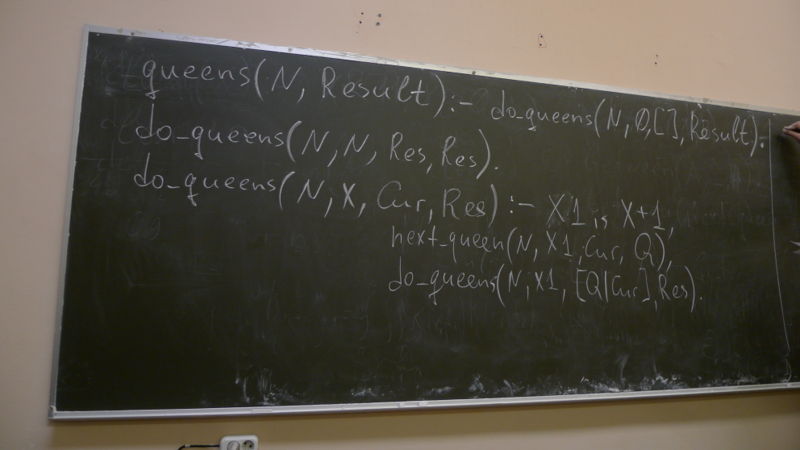 queens(N, Result) :- do_queens(N, 0, [], Result).
do_queens(N, N, Res, Res).
do_queens(N, X, Cur, Res) :- X1 is X+1,
next_queen(N, X1, Cur, Q),
do_queens(N, X1, [Q|Cur], Res).